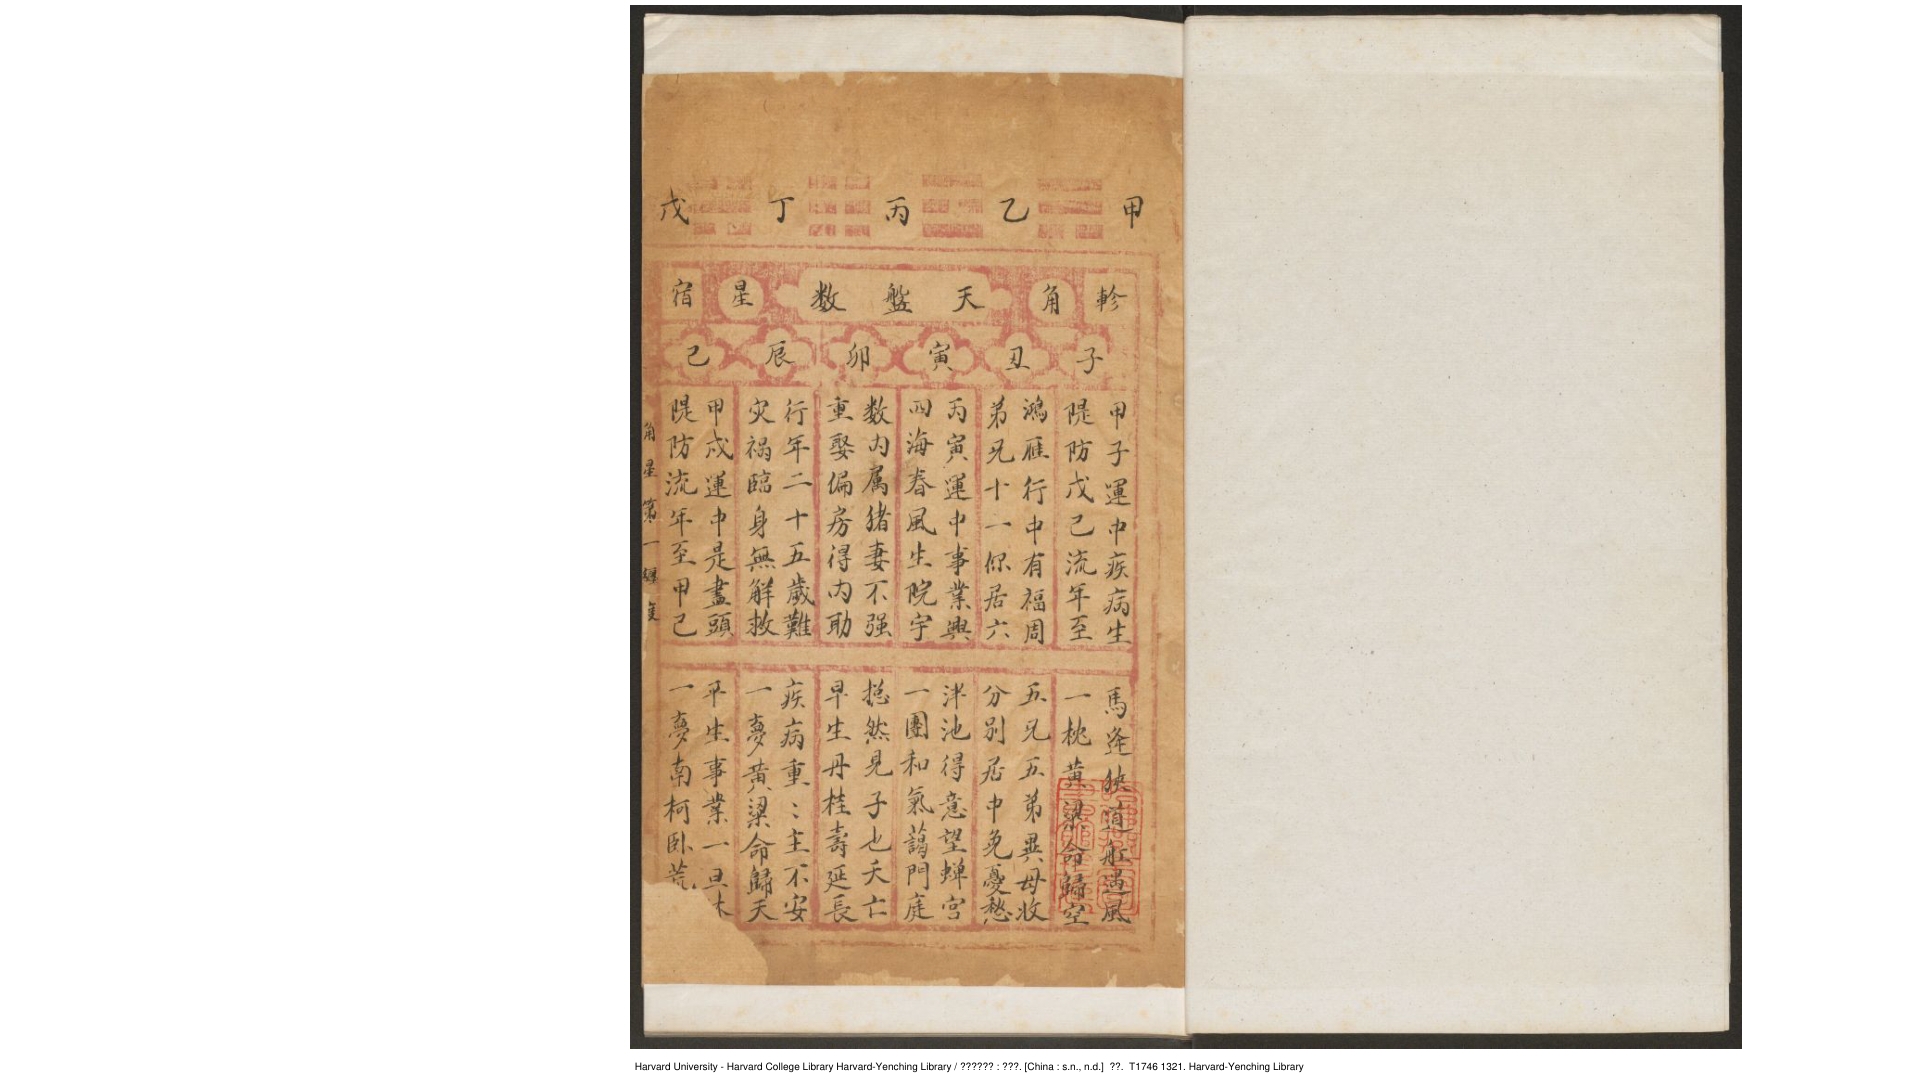 甲 乙 丙 丁 戊
軫 角 天盤数 星 宿
子 丑 寅 卯 辰 巳
甲子運中疾病生
隄防戊己流年至
鴻雁行中有福周
弟兄十一你居六
丙寅運中事業興
四海春風生院宇
数内属猪妻不强
重娶偏房得内助
行年二十五歲難
灾禍臨身無解救
甲戌運中是盡頭
隄防流年至甲己
馬逢狹道船遇風
一枕黃梁命歸空
五兄五弟異母收
分别居中免憂愁
泮池得意望蟬宫
一團和氣藹門庭
摠然見子也夭亡
早生丹桂壽延長
疾病重：主不安
一夢黃梁命歸天
平生事業一旦休
一夢南柯卧荒
角星第一纏度
Harvard University - Harvard College Library Harvard-Yenching Library / ?????? : ???. [China : s.n., n.d.] ??. T1746 1321. Harvard-Yenching Library